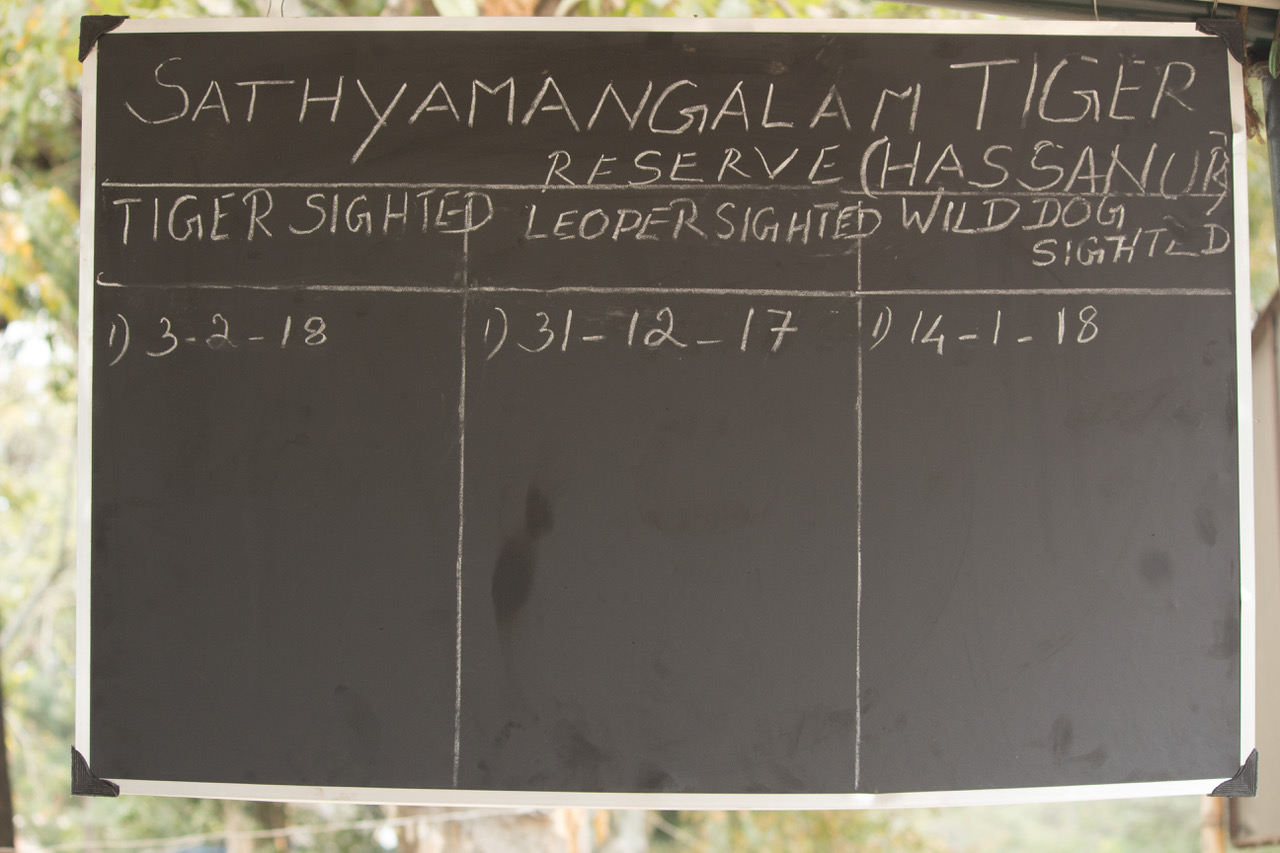 SATHYAMANGALAM TIGER
RESERVE (HASSANUR)
TIGER SIGHTED
LEOPER SIGHTED
WILD DOG
SIGHTED
1) 3-2-18
1) 31-12-17
1) 14-1-18